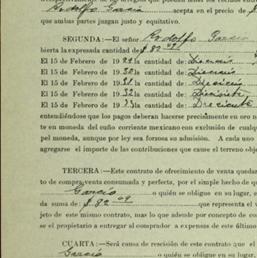 Rodolfo Garcia acepta en el precio de $
que ambas partes juzgan justo y equitativo.
SEGUNDA:—El señor Rodolfo Garcia
bierta la expresada cantidad de $82.00
El 15 de Febrero de 19 la cantidad de:
El 15 de Febrero de 1930 la cantidad de:
El 15 de Febrero de 19 la cantidad de:
El 15 de Febrero de 19 la cantidad de:
El 15 de Febrero de 19 la cantidad de:
entendiéndose que los pagos deberán hacerse precisamente en oro n
te en moneda del cuño corriente mexicano con exclusión de cualquie
pel moneda, aunque por ley sea forzosa su admisión. A cada uno
agregarse el importe de las contribuciones que cause el terreno obje
TERCERA:—Este contrato de ofrecimiento de venta queda
to de compra venta consumada y perfecta, por el simple hecho de qu
Garcia o quién se obligue en su lugar,
da suma de: $82.00 que representa el v
jeto de este mismo contrato, mas lo que adende por concepto de co
se el propietario a entregar al comprador a expensas de este último
CUARTA:—Será causa de rescisión de este contrato que el
Garcia o quién se obligue en su lugar,